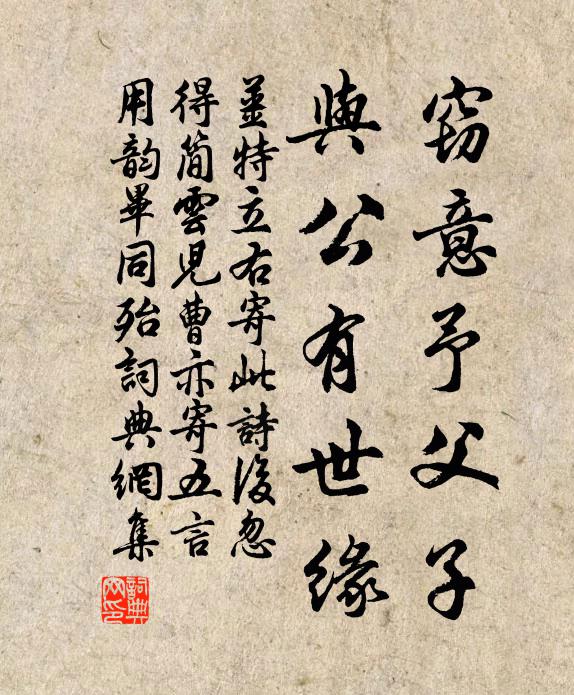 窃意予父子
與公有世緣
姜特立右寄此詩後忽
得簡雲兒曹亦寄五言
用韵畢同殆詞典網集
詞典网印